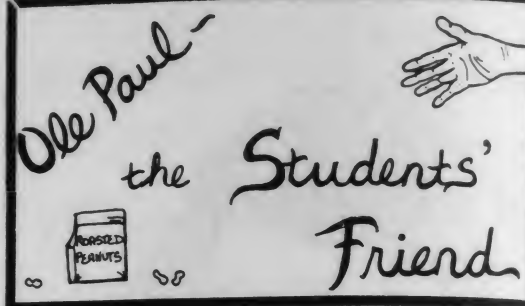 Ole Paul~
the Students'
Friend
ROASTED
PEANUTS